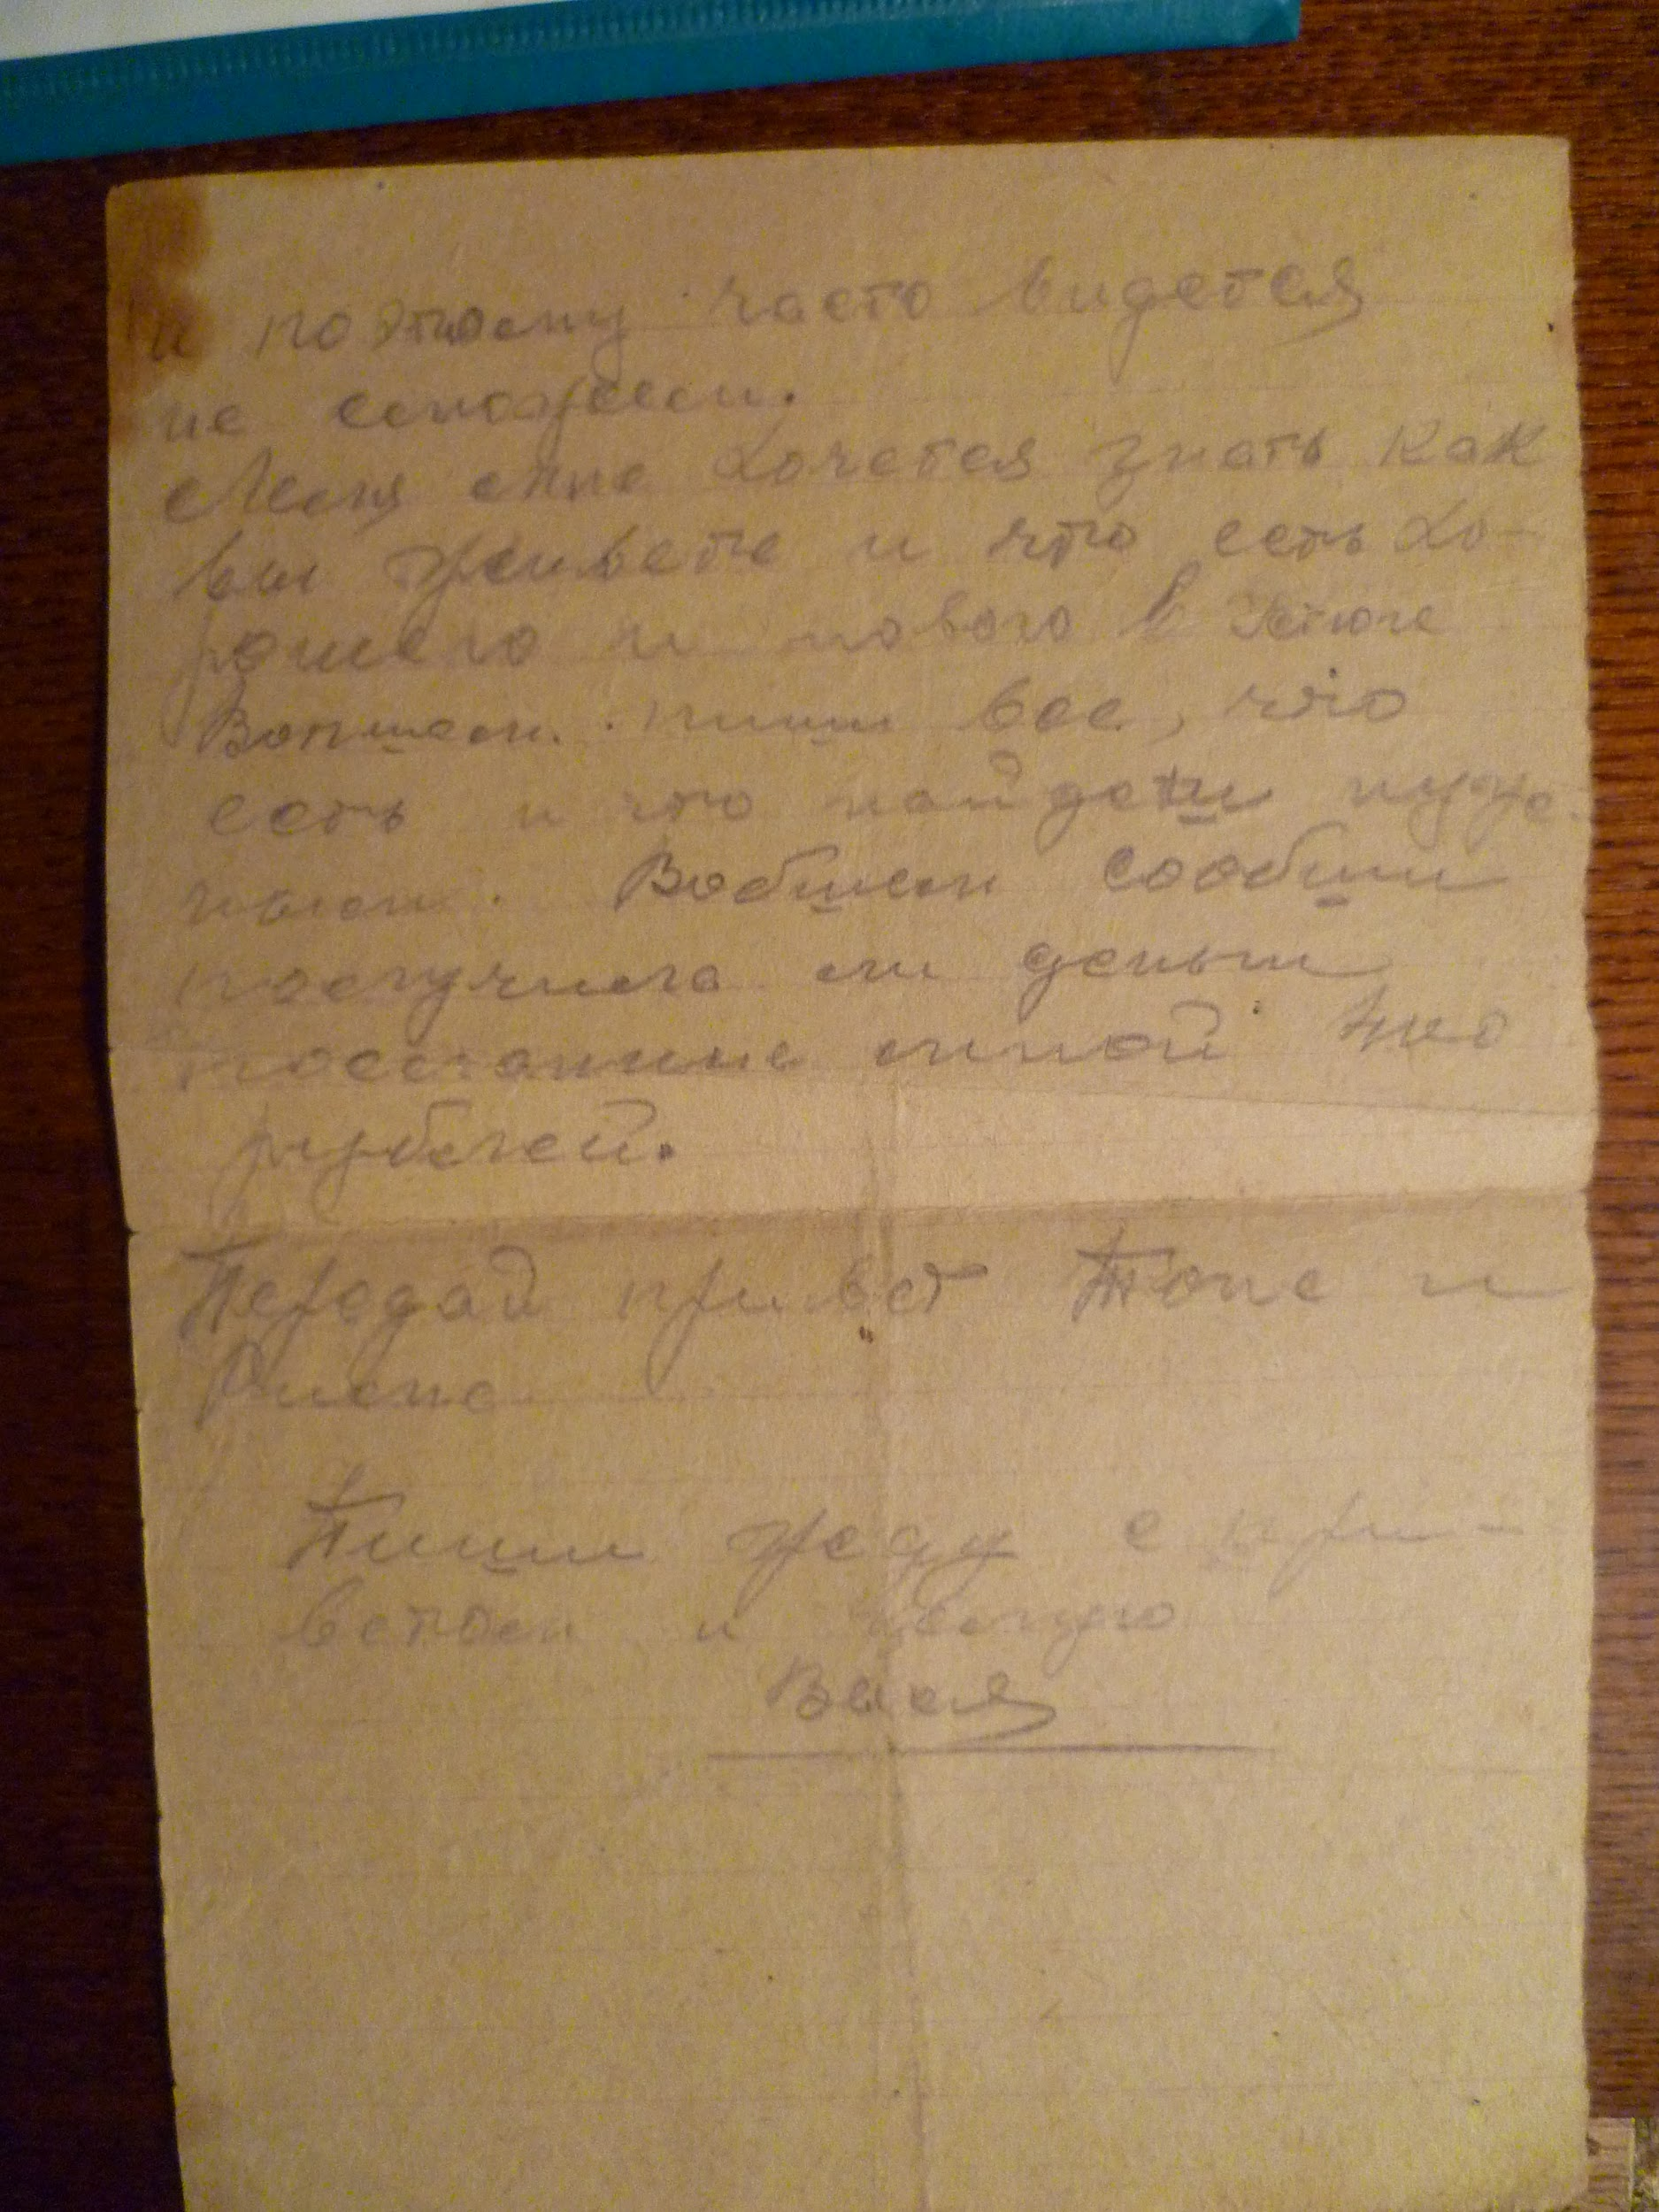 и поэтому часто видется
не сможем.
мне хочется знать как
вы живете и что есть хо-
рошего и нового в Устюге
Вопшем. пиши все, что
есть и что найдети нуж-
ным. Вобшем сообши
получила ли деньги
посланные мной
рублей.
Передай привет Тоне и
Пиши жду с при-
ветом и целую
Вася